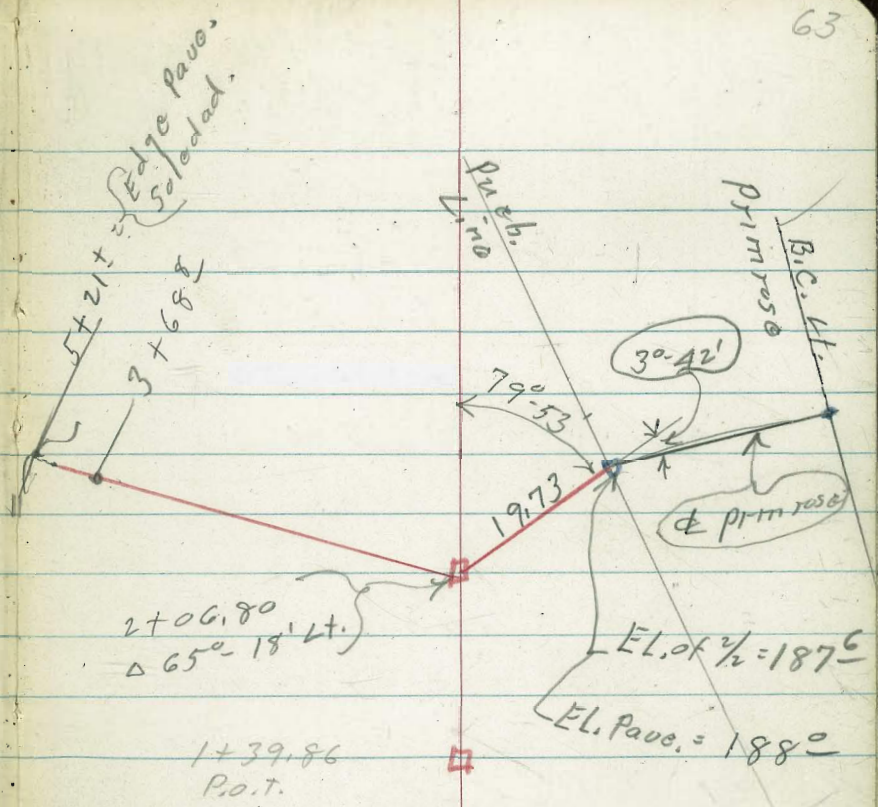 63
5+21± = Edge Pave.
Soledad.
3+688
Pueb.
Line
Primrose
B.C. Lt.
3°-42'
79°-53
19.73
℄ Primrose
2+06.80
Δ 65°-18' Lt.
EL. of 2/2 = 187 6
EL. Pave. = 188 0
1+39.86
P.O.T.